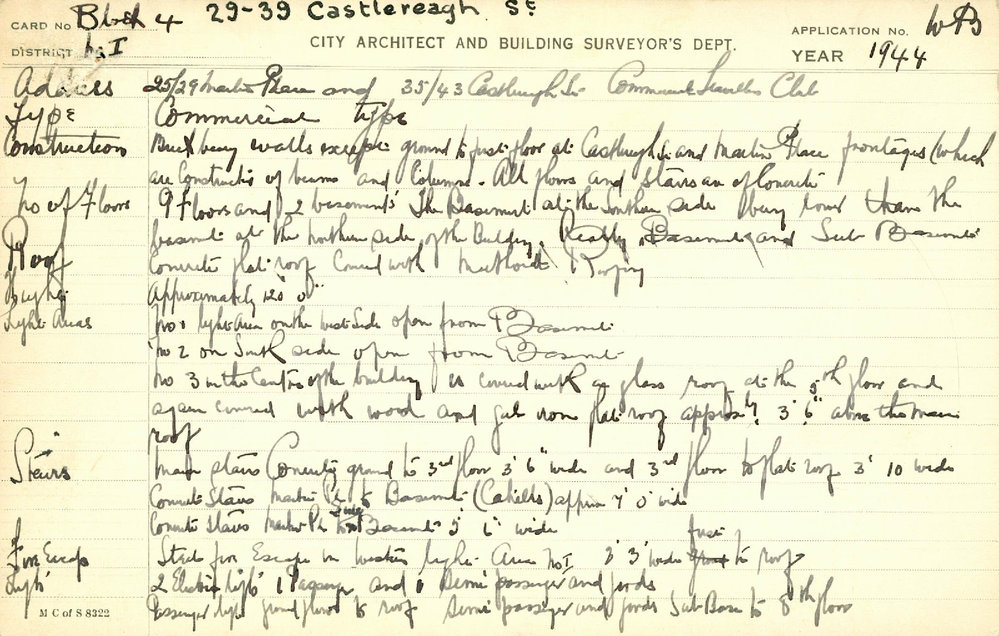 CARD No. Block 4 29-39 Castlereagh St APPLICATION No. WB
DISTRICT No I CITY ARCHITECT AND BUILDING SURVEYOR'S DEPT. YEAR 1944
Address 25/29 Martin Place and 35/43 Castlereagh St Commercial Travellers Club
Type Commercial type
Construction Brick walls except ground to first floor at Castlereagh St and Martin Place frontages (which
are constructed of beams and Columns. All floors and stairs are of Concrete
No of Floors 9 Floors and 2 basements The Basement at the Southern side being lower than the
basement at the northern side of the Building. Really Basement and Sub Basement
Roof Concrete flat roof Covered with Roofing
Height Approximately 120' 0"
Light Areas No 1 light Area on the West Side open from Basement
No 2 on South side open from Basement
No 3 in the Centre of the building is covered with a glass roof at the 5th floor and
again covered with wood and gal iron flat roof approx 3' 6" above the main
roof
Stairs Main stairs Concrete ground to 3rd floor 3' 6" wide and 3rd floor to flat roof 3' 10 wide
Concrete Stairs Martin Pl to Basement (Cahills) approx 7' 0" wide
Concrete Stairs Martin Pl to Basement 3' 6" wide
Fire Escape Steel fire Escape in western light Area No I 3' 3" wide first to roof
Lifts 2 Electric lifts 1 Passenger and 1 Semi passenger and goods
Passenger lift ground floor to roof Semi passenger and goods Sub Base to 8th floor
M C of S 8322